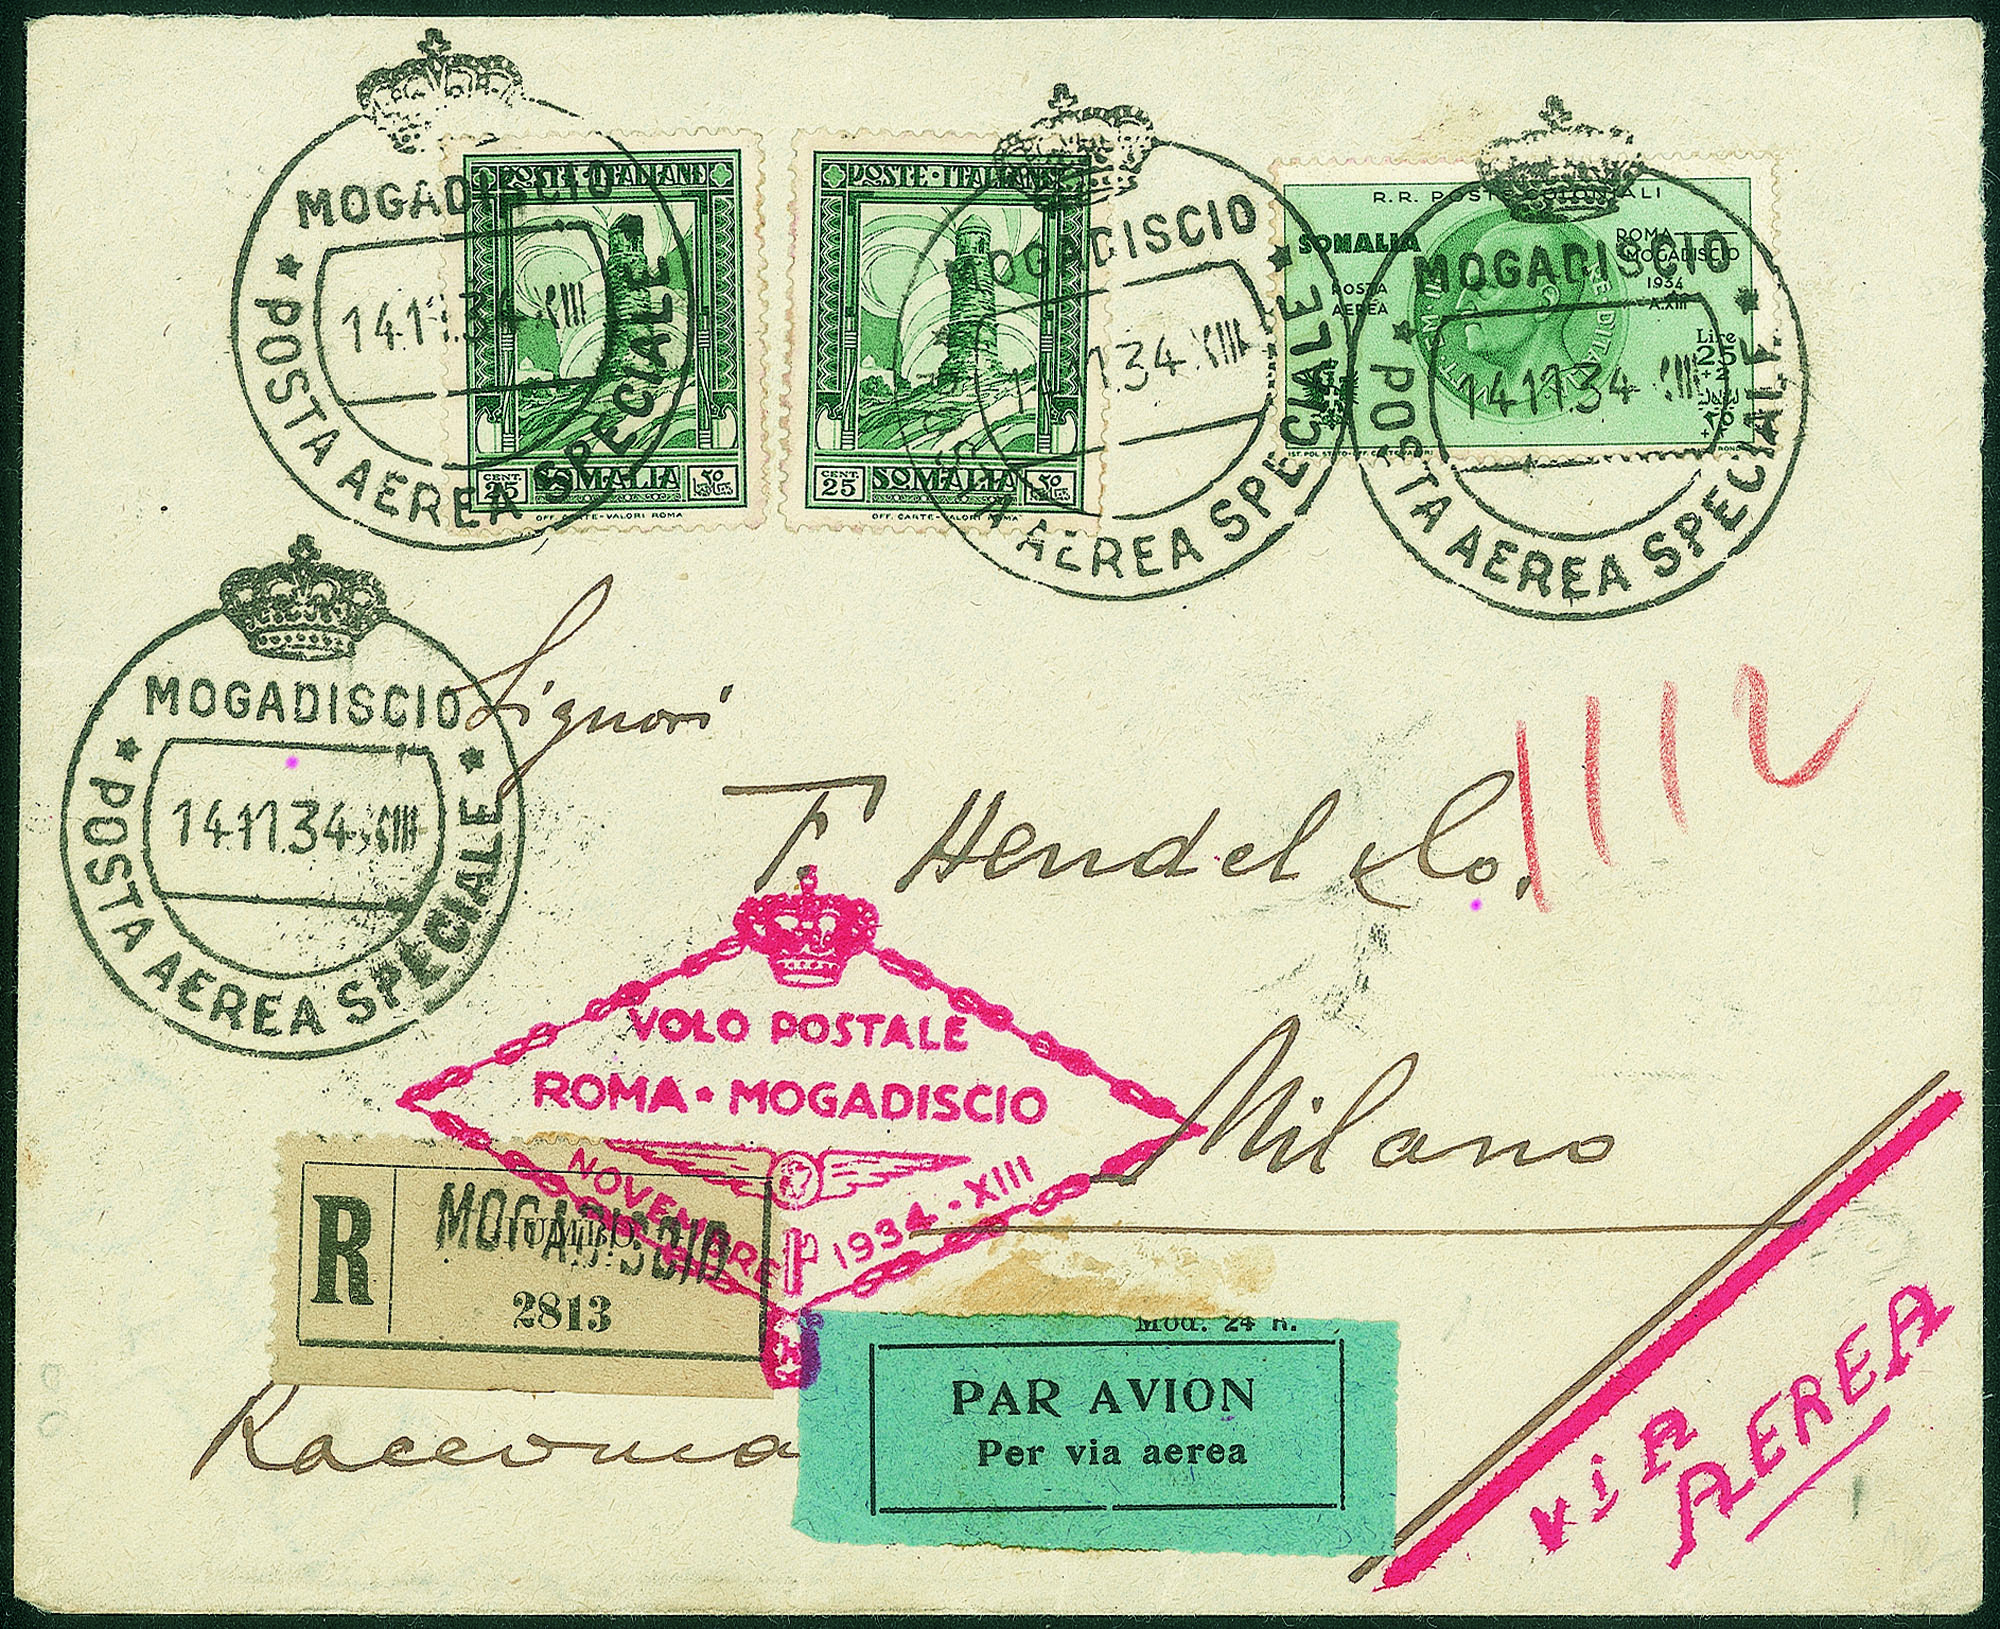 MOGADISCIO
14.11.34.XIII
* POSTA AEREA SPECIALE *
POSTE·ITALIANE
CENT. 25 SOMALIA
OFF. CARTE-VALORI ROMA
POSTE·ITALIANE
CENT. 25 SOMALIA
OFF. CARTE-VALORI ROMA
MOGADISCIO
14.11.34.XIII
POSTA AEREA SPECIALE *
R.R. POSTE COLONIALI
SOMALIA
ROMA—
MOGADISCIO
1934
A.XIII
POSTA
AEREA
Lire
25
+2
MOGADISCIO
14.11.34.XIII
* POSTA AEREA SPECIALE *
MOGADISCIO
14.11.34.XIII
* POSTA AEREA SPECIALE *
Signori
1112
F. Hendel & Co.
VOLO POSTALE
ROMA * MOGADISCIO
NOVEMBRE 1934-XIII
Milano
R
MOGADISCIO
2813
Mod. 24 R.
PAR AVION
Per via aerea
ViA
AEREA